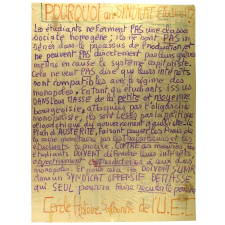 POURQUOI un SYNDICAT Etudiant?
Les étudiants ne forment PAS une classe
sociale homogène; ils ne sont PAS in-
sérés dans le processus de production et
ne peuvent PAS directement par leurs grèves
mettre en cause le système capitaliste.
Cela ne veut PAS dire que leurs intérêts
sont compatibles avec le régime des
monopoles. En tant qu'étudiants ISSUS
DANS leur MASSE de la petite et moyenne
bourgeoisie, attaqués par l'oligarchie
monopoliste, ils sont LÉSÉS par la politique
du gouvernement
plan d'AUSTÉRITÉ, faisant payer
les
étudiants la les
étudiants DOIVENT défendre leurs intérêts
à ceux des
monopoles et pour cela ils DOIVENT s'UNIR
dans un SYNDICAT OFFENSIF DE MASSE
qui SEUL pourra faire
Cercle Histoire Sorbonne de l'U.E.C